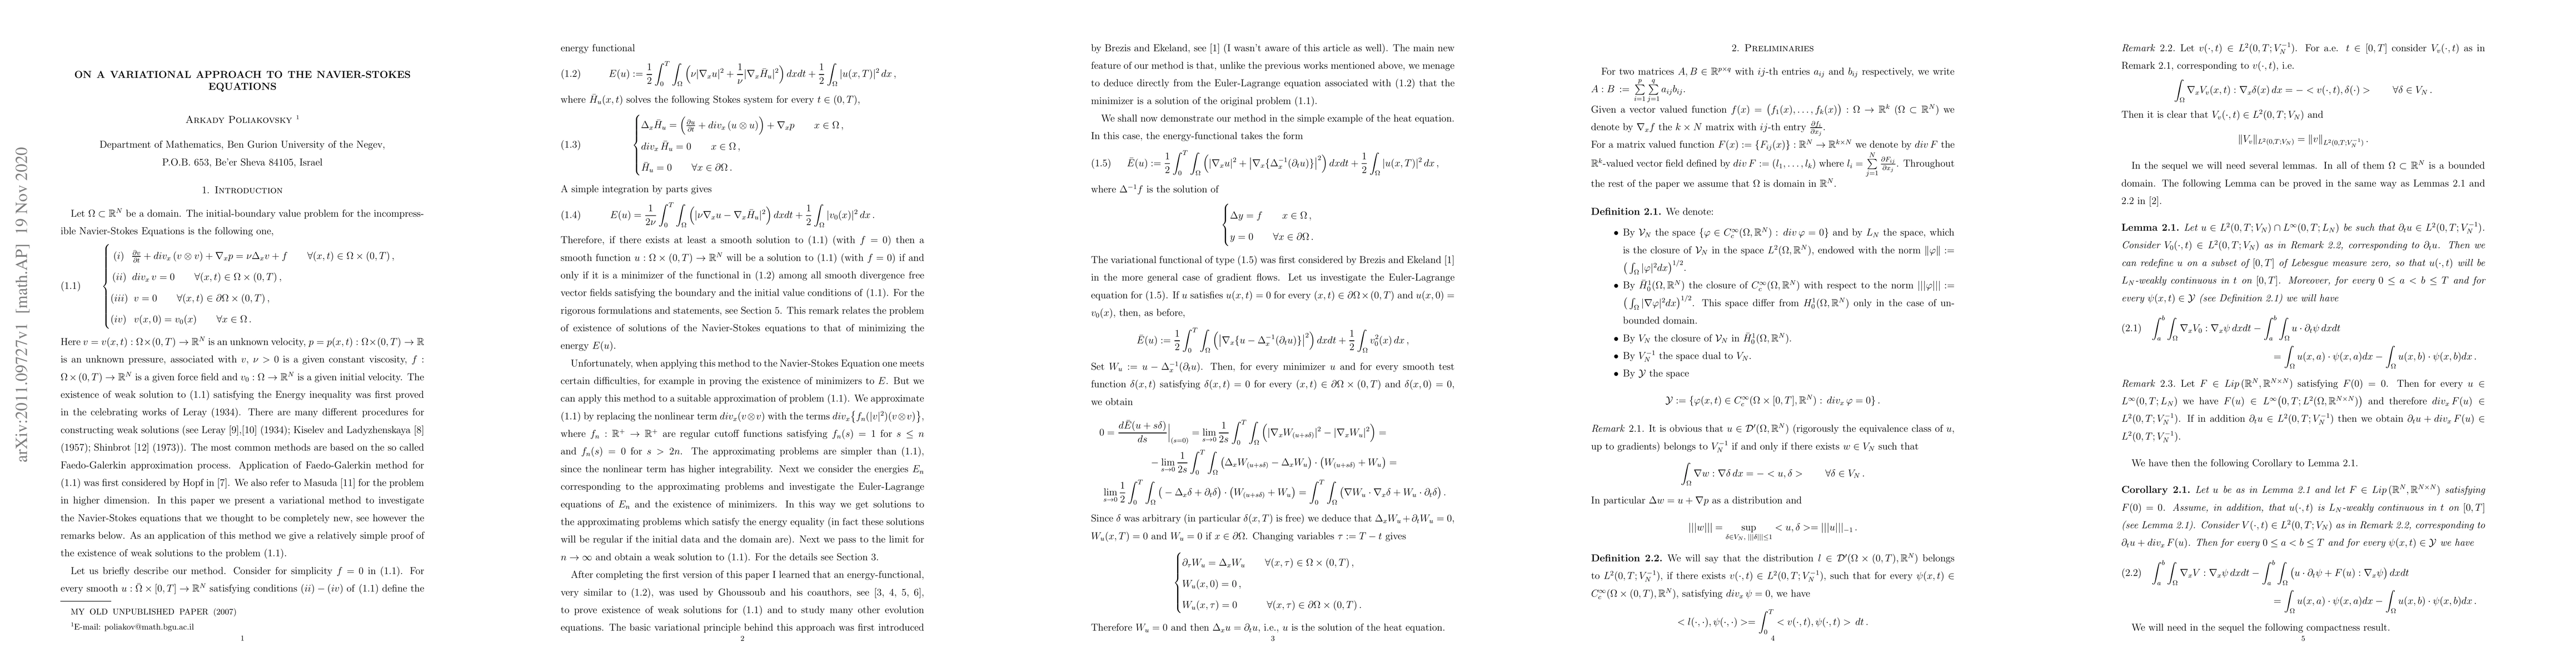 arXiv:2011.09727v1 [math.AP] 19 Nov 2020
ON A VARIATIONAL APPROACH TO THE NAVIER-STOKES
EQUATIONS
ARKADY POLIAKOVSKY ¹
Department of Mathematics, Ben Gurion University of the Negev,
P.O.B. 653, Be'er Sheva 84105, Israel
1. INTRODUCTION
Let Ω ⊂ ℝᴺ be a domain. The initial-boundary value problem for the incompress-
ible Navier-Stokes Equations is the following one,
(1.1) { (i) ∂v/∂t + div_x (v ⊗ v) + ∇_x p = νΔ_x v + f ∀(x, t) ∈ Ω × (0, T),
(ii) div_x v = 0 ∀(x, t) ∈ Ω × (0, T),
(iii) v = 0 ∀(x, t) ∈ ∂Ω × (0, T),
(iv) v(x, 0) = v₀(x) ∀x ∈ Ω.
Here v = v(x, t) : Ω×(0, T) → ℝᴺ is an unknown velocity, p = p(x, t) : Ω×(0, T) → ℝ
is an unknown pressure, associated with v, ν > 0 is a given constant viscosity, f :
Ω × (0, T) → ℝᴺ is a given force field and v₀ : Ω → ℝᴺ is a given initial velocity. The
existence of weak solution to (1.1) satisfying the Energy inequality was first proved
in the celebrating works of Leray (1934). There are many different procedures for
constructing weak solutions (see Leray [9],[10] (1934); Kiselev and Ladyzhenskaya [8]
(1957); Shinbrot [12] (1973)). The most common methods are based on the so called
Faedo-Galerkin approximation process. Application of Faedo-Galerkin method for
(1.1) was first considered by Hopf in [7]. We also refer to Masuda [11] for the problem
in higher dimension. In this paper we present a variational method to investigate
the Navier-Stokes equations that we thought to be completely new, see however the
remarks below. As an application of this method we give a relatively simple proof of
the existence of weak solutions to the problem (1.1).
Let us briefly describe our method. Consider for simplicity f = 0 in (1.1). For
every smooth u : Ω̄ × [0, T] → ℝᴺ satisfying conditions (ii) − (iv) of (1.1) define the
MY OLD UNPUBLISHED PAPER (2007)
¹E-mail: poliakov@math.bgu.ac.il
1
energy functional
(1.2) E(u) := 1/2 ∫₀ᵀ ∫_Ω (ν|∇_x u|² + 1/ν |∇_x H̄_u|²) dxdt + 1/2 ∫_Ω |u(x, T)|² dx,
where H̄_u(x, t) solves the following Stokes system for every t ∈ (0, T),
(1.3) { Δ_x H̄_u = (∂u/∂t + div_x (u ⊗ u)) + ∇_x p x ∈ Ω,
div_x H̄_u = 0 x ∈ Ω,
H̄_u = 0 ∀x ∈ ∂Ω.
A simple integration by parts gives
(1.4) E(u) = 1/2ν ∫₀ᵀ ∫_Ω (|ν∇_x u − ∇_x H̄_u|²) dxdt + 1/2 ∫_Ω |v₀(x)|² dx.
Therefore, if there exists at least a smooth solution to (1.1) (with f = 0) then a
smooth function u : Ω × (0, T) → ℝᴺ will be a solution to (1.1) (with f = 0) if and
only if it is a minimizer of the functional in (1.2) among all smooth divergence free
vector fields satisfying the boundary and the initial value conditions of (1.1). For the
rigorous formulations and statements, see Section 5. This remark relates the problem
of existence of solutions of the Navier-Stokes equations to that of minimizing the
energy E(u).
Unfortunately, when applying this method to the Navier-Stokes Equation one meets
certain difficulties, for example in proving the existence of minimizers to E. But we
can apply this method to a suitable approximation of problem (1.1). We approximate
(1.1) by replacing the nonlinear term div_x(v⊗v) with the terms div_x{f_n(|v|²)(v⊗v)},
where f_n : ℝ⁺ → ℝ⁺ are regular cutoff functions satisfying f_n(s) = 1 for s ≤ n
and f_n(s) = 0 for s > 2n. The approximating problems are simpler than (1.1),
since the nonlinear term has higher integrability. Next we consider the energies E_n
corresponding to the approximating problems and investigate the Euler-Lagrange
equations of E_n and the existence of minimizers. In this way we get solutions to
the approximating problems which satisfy the energy equality (in fact these solutions
will be regular if the initial data and the domain are). Next we pass to the limit for
n → ∞ and obtain a weak solution to (1.1). For the details see Section 3.
After completing the first version of this paper I learned that an energy-functional,
very similar to (1.2), was used by Ghoussoub and his coauthors, see [3, 4, 5, 6],
to prove existence of weak solutions for (1.1) and to study many other evolution
equations. The basic variational principle behind this approach was first introduced
2
by Brezis and Ekeland, see [1] (I wasn't aware of this article as well). The main new
feature of our method is that, unlike the previous works mentioned above, we menage
to deduce directly from the Euler-Lagrange equation associated with (1.2) that the
minimizer is a solution of the original problem (1.1).
We shall now demonstrate our method in the simple example of the heat equation.
In this case, the energy-functional takes the form
(1.5) Ē(u) := 1/2 ∫₀ᵀ ∫_Ω (|∇_x u|² + |∇_x{Δ_x⁻¹(∂_t u)}|²) dxdt + 1/2 ∫_Ω |u(x, T)|² dx,
where Δ⁻¹f is the solution of
{ Δy = f x ∈ Ω,
y = 0 ∀x ∈ ∂Ω.
The variational functional of type (1.5) was first considered by Brezis and Ekeland [1]
in the more general case of gradient flows. Let us investigate the Euler-Lagrange
equation for (1.5). If u satisfies u(x, t) = 0 for every (x, t) ∈ ∂Ω × (0, T) and u(x, 0) =
v₀(x), then, as before,
Ē(u) := 1/2 ∫₀ᵀ ∫_Ω (|∇_x{u − Δ_x⁻¹(∂_t u)}|²) dxdt + 1/2 ∫_Ω v₀²(x) dx,
Set W_u := u − Δ_x⁻¹(∂_t u). Then, for every minimizer u and for every smooth test
function δ(x, t) satisfying δ(x, t) = 0 for every (x, t) ∈ ∂Ω × (0, T) and δ(x, 0) = 0,
we obtain
0 = dĒ(u + sδ)/ds |_(s=0) = lim_{s→0} 1/2s ∫₀ᵀ ∫_Ω (|∇_x W_(u+sδ)|² − |∇_x W_u|²) =
− lim_{s→0} 1/2s ∫₀ᵀ ∫_Ω (Δ_x W_(u+sδ) − Δ_x W_u) · (W_(u+sδ) + W_u) =
lim_{s→0} 1/2 ∫₀ᵀ ∫_Ω (− Δ_x δ + ∂_t δ) · (W_(u+sδ) + W_u) = ∫₀ᵀ ∫_Ω (∇W_u · ∇_x δ + W_u · ∂_t δ).
Since δ was arbitrary (in particular δ(x, T) is free) we deduce that Δ_x W_u + ∂_t W_u = 0,
W_u(x, T) = 0 and W_u = 0 if x ∈ ∂Ω. Changing variables τ := T − t gives
{ ∂_τ W_u = Δ_x W_u ∀(x, τ) ∈ Ω × (0, T),
W_u(x, 0) = 0,
W_u(x, τ) = 0 ∀(x, τ) ∈ ∂Ω × (0, T).
Therefore W_u = 0 and then Δ_x u = ∂_t u, i.e., u is the solution of the heat equation.
3
2. PRELIMINARIES
For two matrices A, B ∈ ℝ^{p×q} with ij-th entries a_ij and b_ij respectively, we write
A : B := Σ_{i=1}^p Σ_{j=1}^q a_ij b_ij.
Given a vector valued function f(x) = (f₁(x), . . . , f_k(x)) : Ω → ℝᵏ (Ω ⊂ ℝᴺ) we
denote by ∇_x f the k × N matrix with ij-th entry ∂f_i/∂x_j.
For a matrix valued function F(x) := {F_ij(x)} : ℝᴺ → ℝ^{k×N} we denote by div F the
ℝᵏ-valued vector field defined by div F := (l₁, . . . , l_k) where l_i = Σ_{j=1}^N ∂F_ij/∂x_j. Throughout
the rest of the paper we assume that Ω is domain in ℝᴺ.
Definition 2.1. We denote:
• By 𝒱_N the space {φ ∈ C_c^∞(Ω, ℝᴺ) : div φ = 0} and by L_N the space, which
is the closure of 𝒱_N in the space L²(Ω, ℝᴺ), endowed with the norm ‖φ‖ :=
(∫_Ω |φ|²dx)^{1/2}.
• By H̄₀¹(Ω, ℝᴺ) the closure of C_c^∞(Ω, ℝᴺ) with respect to the norm |||φ||| :=
(∫_Ω |∇φ|²dx)^{1/2}. This space differ from H₀¹(Ω, ℝᴺ) only in the case of un-
bounded domain.
• By V_N the closure of 𝒱_N in H̄₀¹(Ω, ℝᴺ).
• By V_N⁻¹ the space dual to V_N.
• By 𝒴 the space
𝒴 := {φ(x, t) ∈ C_c^∞(Ω × [0, T], ℝᴺ) : div_x φ = 0}.
Remark 2.1. It is obvious that u ∈ 𝒟′(Ω, ℝᴺ) (rigorously the equivalence class of u,
up to gradients) belongs to V_N⁻¹ if and only if there exists w ∈ V_N such that
∫_Ω ∇w : ∇δ dx = − < u, δ > ∀δ ∈ V_N.
In particular Δw = u + ∇p as a distribution and
|||w||| = sup_{δ∈V_N, |||δ|||≤1} < u, δ >= |||u|||₋₁.
Definition 2.2. We will say that the distribution l ∈ 𝒟′(Ω × (0, T), ℝᴺ) belongs
to L²(0, T; V_N⁻¹), if there exists v(·, t) ∈ L²(0, T; V_N⁻¹), such that for every ψ(x, t) ∈
C_c^∞(Ω × (0, T), ℝᴺ), satisfying div_x ψ = 0, we have
< l(·, ·), ψ(·, ·) >= ∫₀ᵀ < v(·, t), ψ(·, t) > dt.
4
Remark 2.2. Let v(·, t) ∈ L²(0, T; V_N⁻¹). For a.e. t ∈ [0, T] consider V_v(·, t) as in
Remark 2.1, corresponding to v(·, t), i.e.
∫_Ω ∇_x V_v(x, t) : ∇_x δ(x) dx = − < v(·, t), δ(·) > ∀δ ∈ V_N.
Then it is clear that V_v(·, t) ∈ L²(0, T; V_N) and
‖V_v‖_{L²(0,T;V_N)} = ‖v‖_{L²(0,T;V_N⁻¹)}.
In the sequel we will need several lemmas. In all of them Ω ⊂ ℝᴺ is a bounded
domain. The following Lemma can be proved in the same way as Lemmas 2.1 and
2.2 in [2].
Lemma 2.1. Let u ∈ L²(0, T; V_N) ∩ L^∞(0, T; L_N) be such that ∂_t u ∈ L²(0, T; V_N⁻¹).
Consider V₀(·, t) ∈ L²(0, T; V_N) as in Remark 2.2, corresponding to ∂_t u. Then we
can redefine u on a subset of [0, T] of Lebesgue measure zero, so that u(·, t) will be
L_N-weakly continuous in t on [0, T]. Moreover, for every 0 ≤ a < b ≤ T and for
every ψ(x, t) ∈ 𝒴 (see Definition 2.1) we will have
(2.1) ∫_a^b ∫_Ω ∇_x V₀ : ∇_x ψ dxdt − ∫_a^b ∫_Ω u · ∂_t ψ dxdt
= ∫_Ω u(x, a) · ψ(x, a)dx − ∫_Ω u(x, b) · ψ(x, b)dx.
Remark 2.3. Let F ∈ Lip (ℝᴺ, ℝ^{N×N}) satisfying F(0) = 0. Then for every u ∈
L^∞(0, T; L_N) we have F(u) ∈ L^∞(0, T; L²(Ω, ℝ^{N×N})) and therefore div_x F(u) ∈
L²(0, T; V_N⁻¹). If in addition ∂_t u ∈ L²(0, T; V_N⁻¹) then we obtain ∂_t u + div_x F(u) ∈
L²(0, T; V_N⁻¹).
We have then the following Corollary to Lemma 2.1.
Corollary 2.1. Let u be as in Lemma 2.1 and let F ∈ Lip (ℝᴺ, ℝ^{N×N}) satisfying
F(0) = 0. Assume, in addition, that u(·, t) is L_N-weakly continuous in t on [0, T]
(see Lemma 2.1). Consider V(·, t) ∈ L²(0, T; V_N) as in Remark 2.2, corresponding to
∂_t u + div_x F(u). Then for every 0 ≤ a < b ≤ T and for every ψ(x, t) ∈ 𝒴 we have
(2.2) ∫_a^b ∫_Ω ∇_x V : ∇_x ψ dxdt − ∫_a^b ∫_Ω (u · ∂_t ψ + F(u) : ∇_x ψ) dxdt
= ∫_Ω u(x, a) · ψ(x, a)dx − ∫_Ω u(x, b) · ψ(x, b)dx.
We will need in the sequel the following compactness result.
5